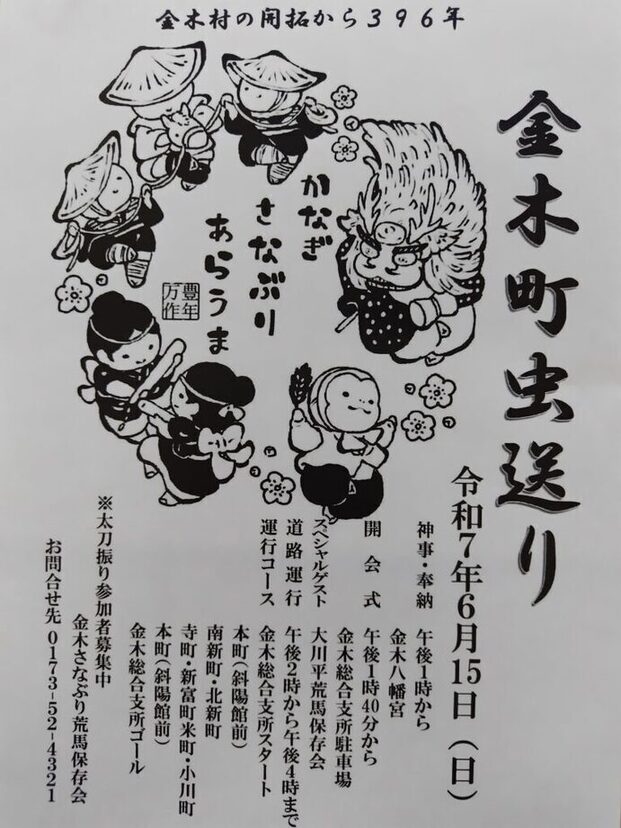 金木村の開拓から396年
金木町虫送り
かなぎ
さなぶり
あらうま
豊年
万作
令和7年6月15日(日)
神事・奉納 午後1時から
金木八幡宮
開会式 午後1時40分から
金木総合支所駐車場
スペシャルゲスト 大川平荒馬保存会
道路運行 午後2時から午後4時まで
運行コース 金木総合支所スタート
本町(斜陽館前)
南新町・北新町
寺町・新富町米町・小川町
本町(斜陽館前)
金木総合支所ゴール
※太刀振り参加者募集中
金木さなぶり荒馬保存会
お問合せ先 0173-52-4321